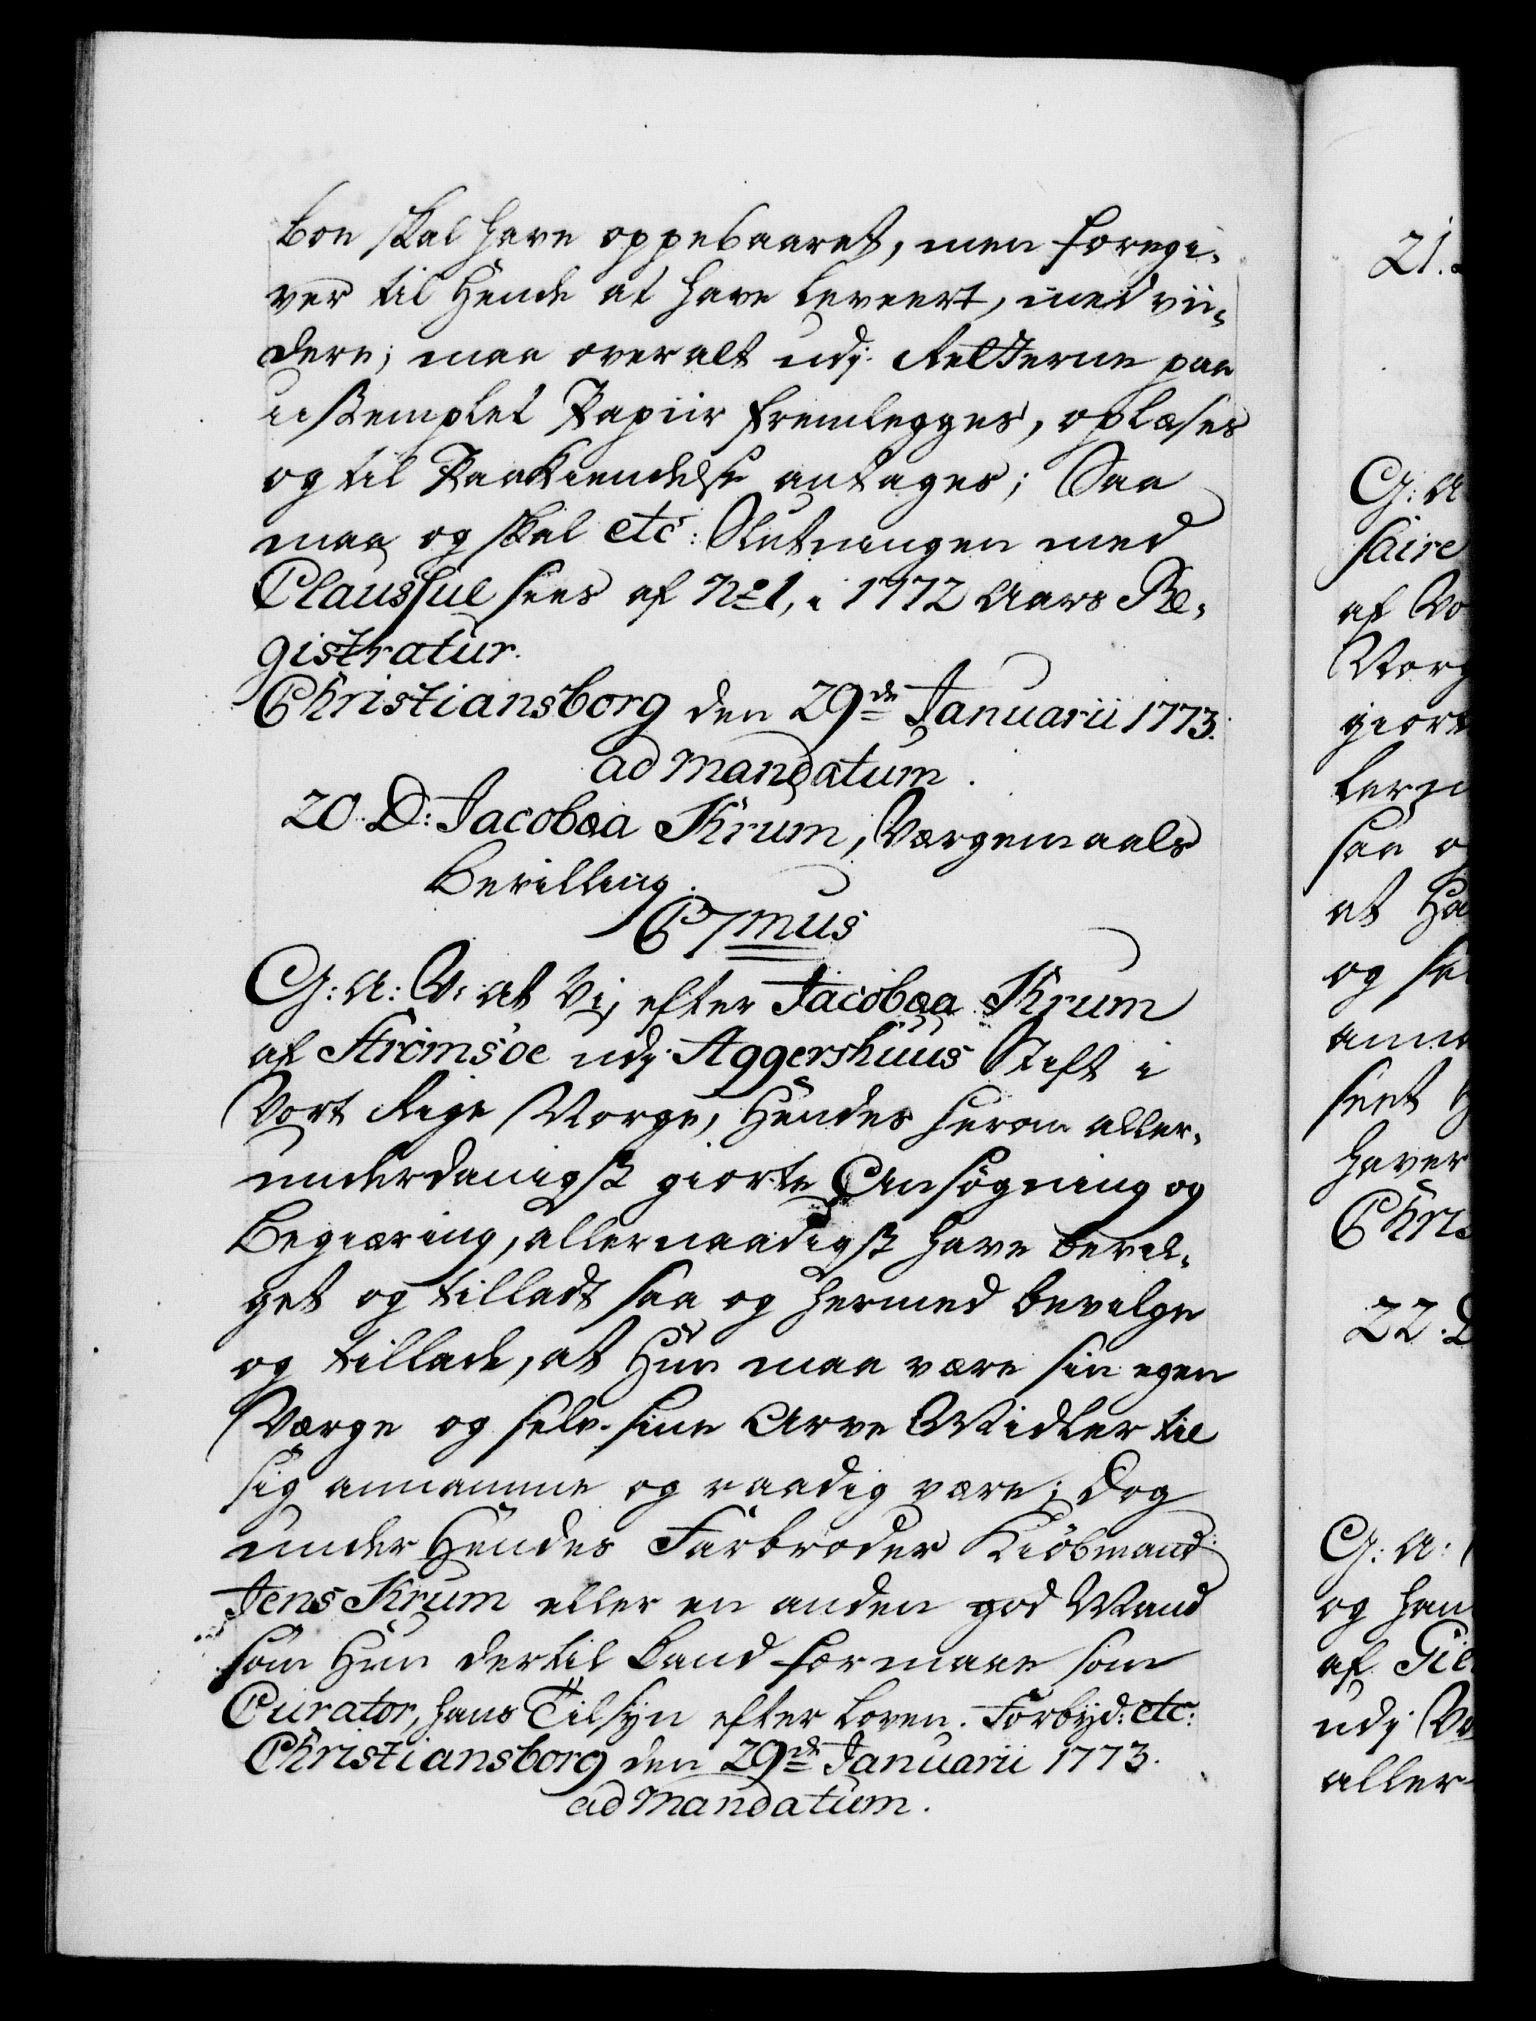 boe skal have oppebaaret, men foregi-
ver til Hende at have leveert, med vii-
dere; maa overalt udj Retterne paa
ustemplet Papiir fremlegges, oplæses
og til Paakiendelse antages; Saa
maa og skal etc: Slutningen med
Claussul sees af No 1, i 1772 Aars Re-
gistratur.
Christiansborg den 29de Januarii 1773.
ad mandatum.
20. D: Jacobæa Krum, Værgemaals
Bevilling.
C7mus
G: A: V: at Vi, efter Jacobæa Krum
af Strømsøe udj Aggershuus Stift i
Vort Rige Norge, Hendes herom aller-
underdanigst giorte Ansøgning og
Begiæring, allernaadigst have bevil-
get og tilladt saa og hermed bevilge
og tillade, at Hun maa være sin egen
Værge og selv sine Arve Midler til
sig annamme og raadig være; dog
under Hendes Farbroder Kiøbmand
Jens Krum eller en anden god Mand
som Hun dertil kand formaae som
Curator, hans Tilsyn efter Loven. Forbyd: etc:
Christiansborg den 29de Januarii 1773.
ad mandatum.
21.
G: A
saire
af Vo
Norg
giort
lern
saa o
at Ha
og se
anna
seet
haver
Chris
22. D
G: A:
og han
af Gie
udj Vo
aller-